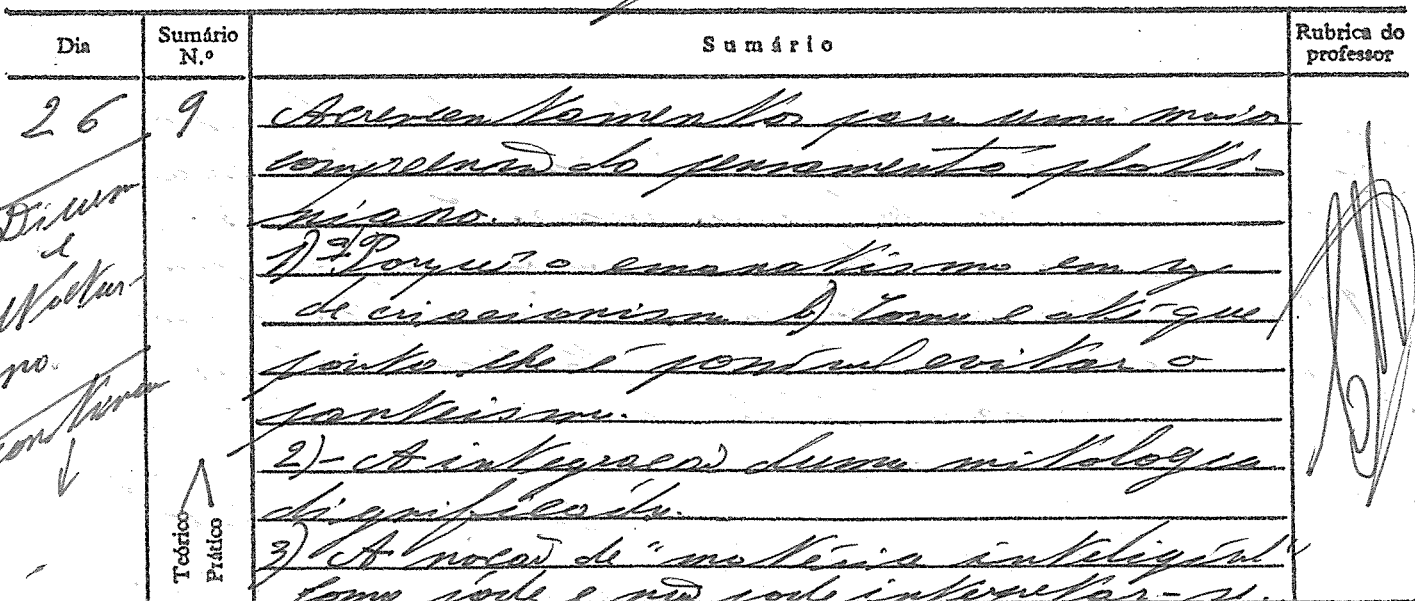 Dia
Sumário N.º
Sumário
Rubrica do professor
26
9
Diurno
e
Noctur-
no.
Acrescentamentos para uma maior
compreensão do pensamento ploti-
niano.
1) a) Porquê o emanatismo em vez
de criacionismo b) Como e até que
ponto lhe é possível evitar o
panteísmo.
2) - A integração duma mitologia
dignificada.
3) A noção de "matéria inteligível"
Como pode e não pode interpretar-se.
Teórico
Prático